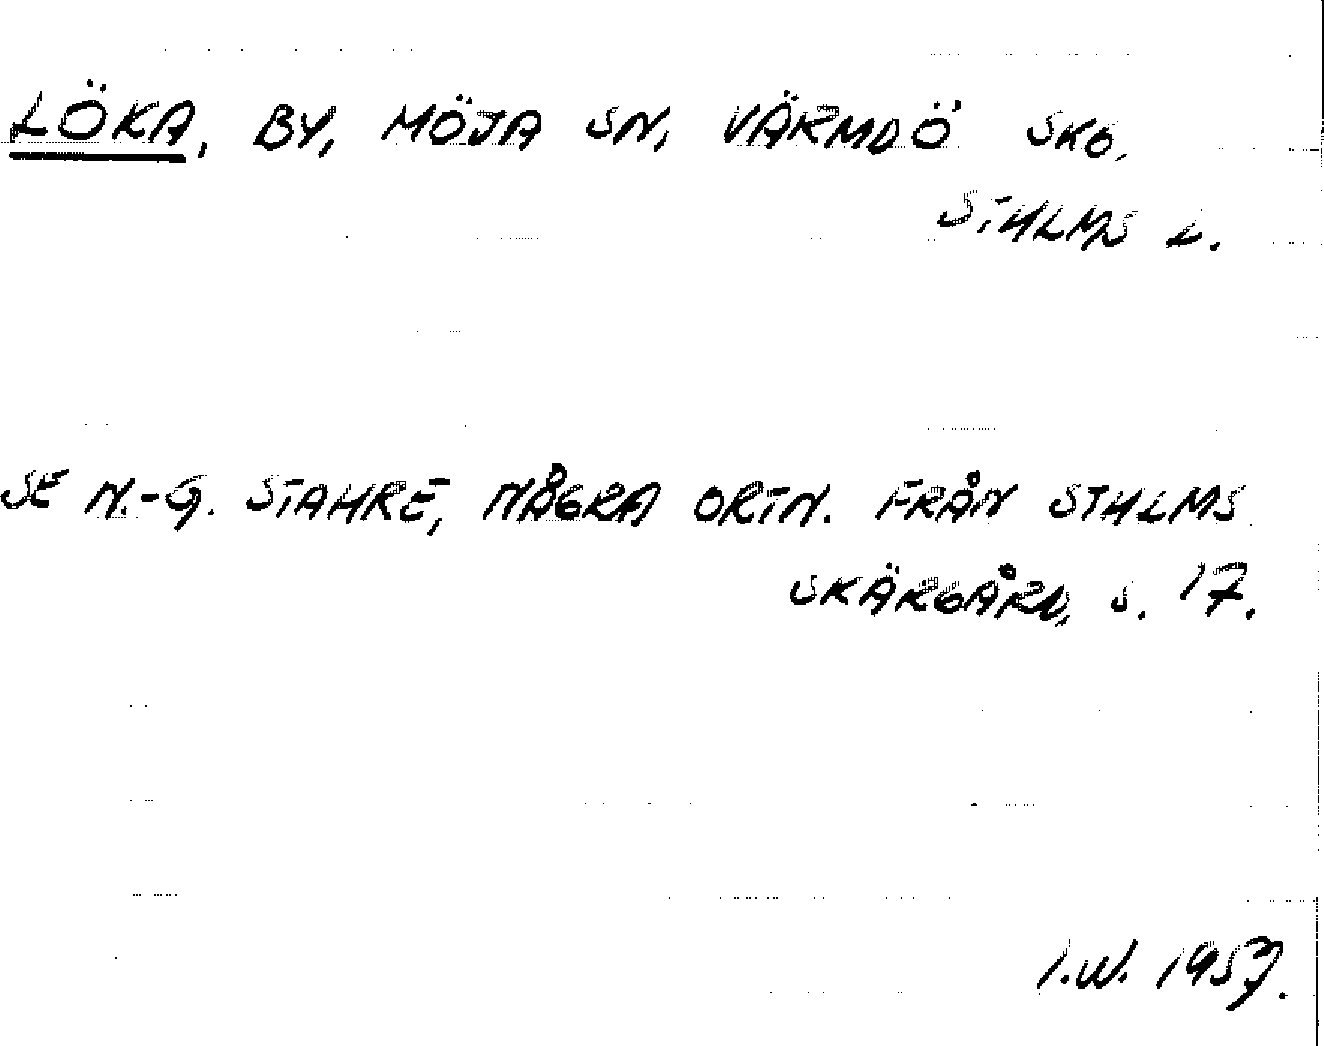 LÖKA, BY, MÖJA SN, VÄRMDÖ SKG,
STHLMS L.
SE N.-G. STAHRE, NÅGRA ORTN. FRÅN STHLMS
SKÄRGÅRD, S. 17.
I.W. 1957.